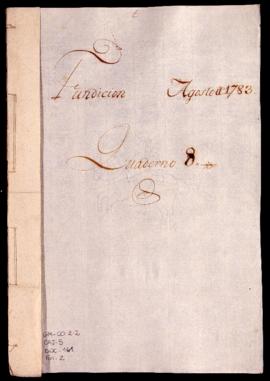 Fundicion Agosto d 1783.
Quaderno 8.
GM-CO-2-2
CAJ-5
DOC-161
Fol-2